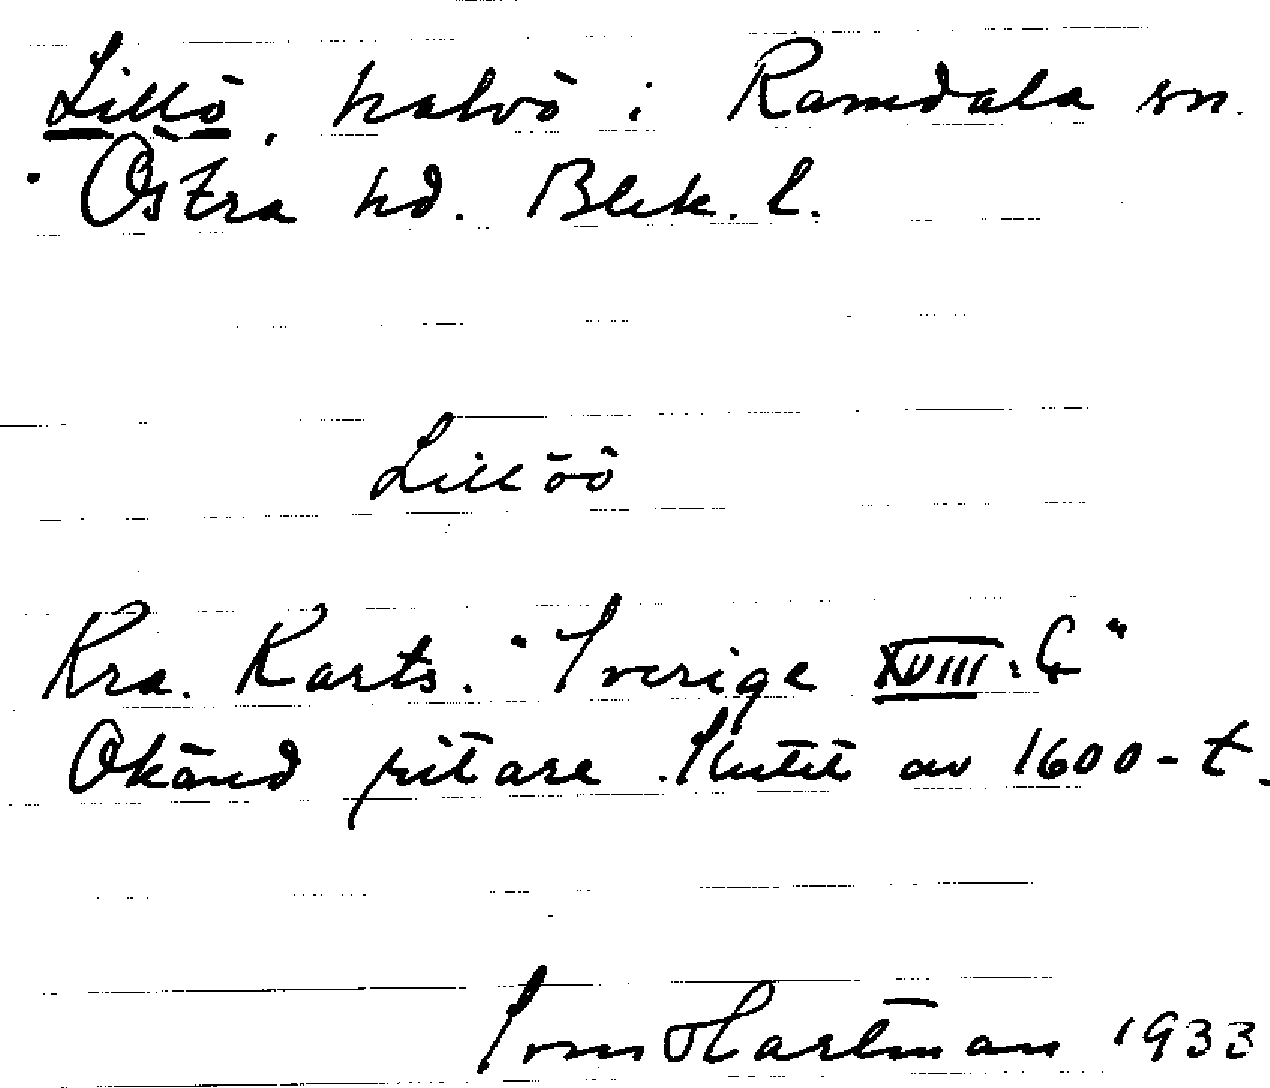 Lillö, halvö i Ramdala sn.
Östra hd. Blek. l.
Lillöö
Kra. Karts. "Sverige XVIII. C"
Okänd ritare. Slutet av 1600-t.
Sven Hartman 1933